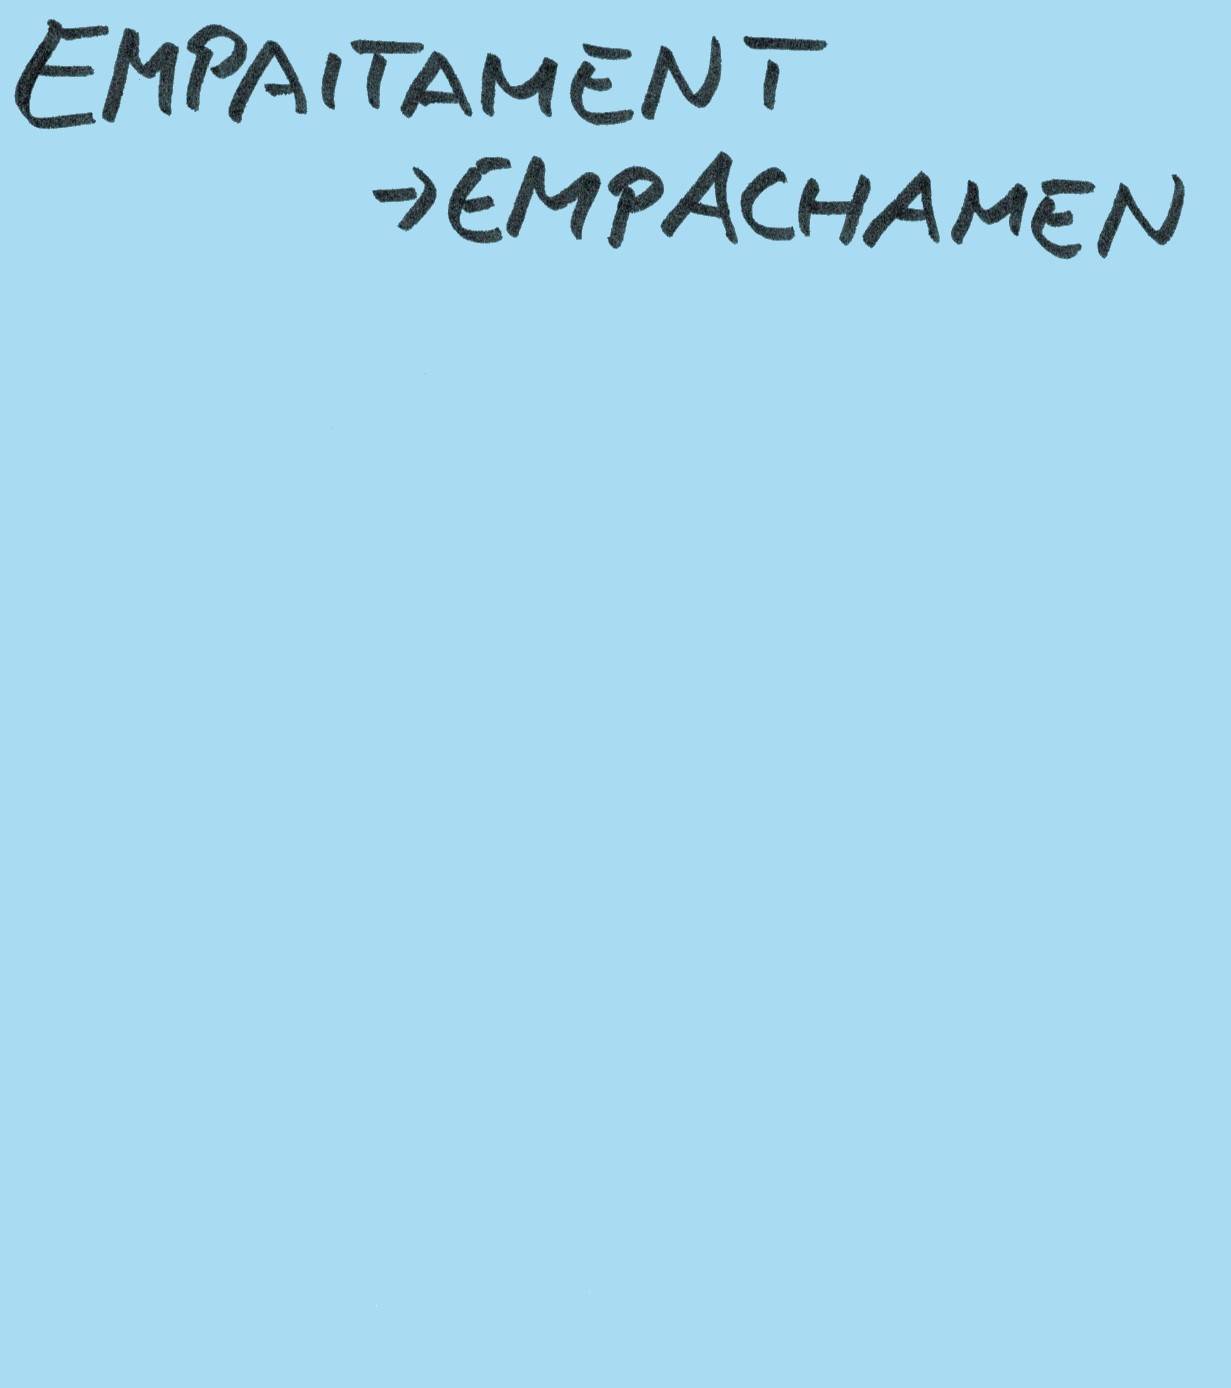 EMPAITAMENT
→EMPACHAMEN